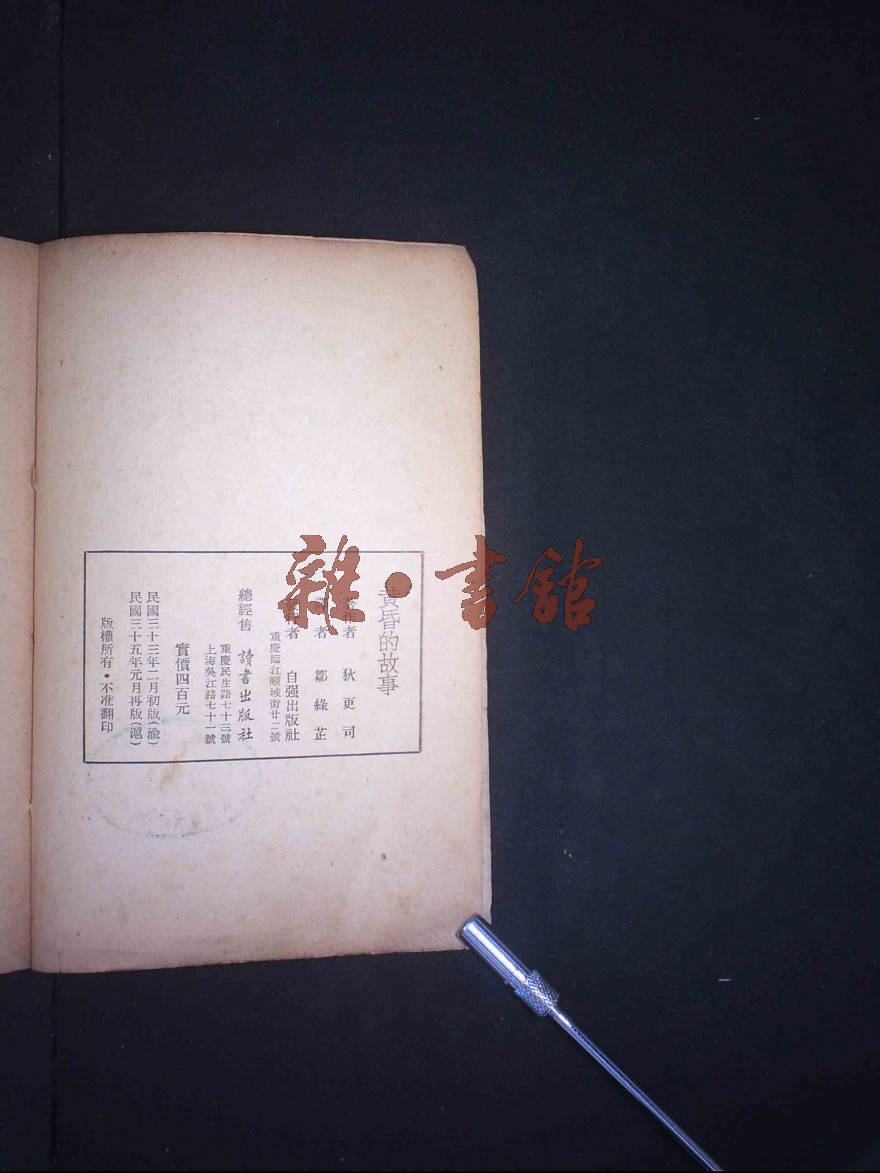 黄昏的故事
著作者 狄更司
者 鄒綠芷
者 自强出版社
重慶臨江順城街廿二號
總經售 讀書出版社
重慶民生路七十三號
上海吳江路七十一號
實價四百元
民國三十三年二月初版(渝)
民國三十五年元月再版(滬)
版權所有·不准翻印
雜·書館